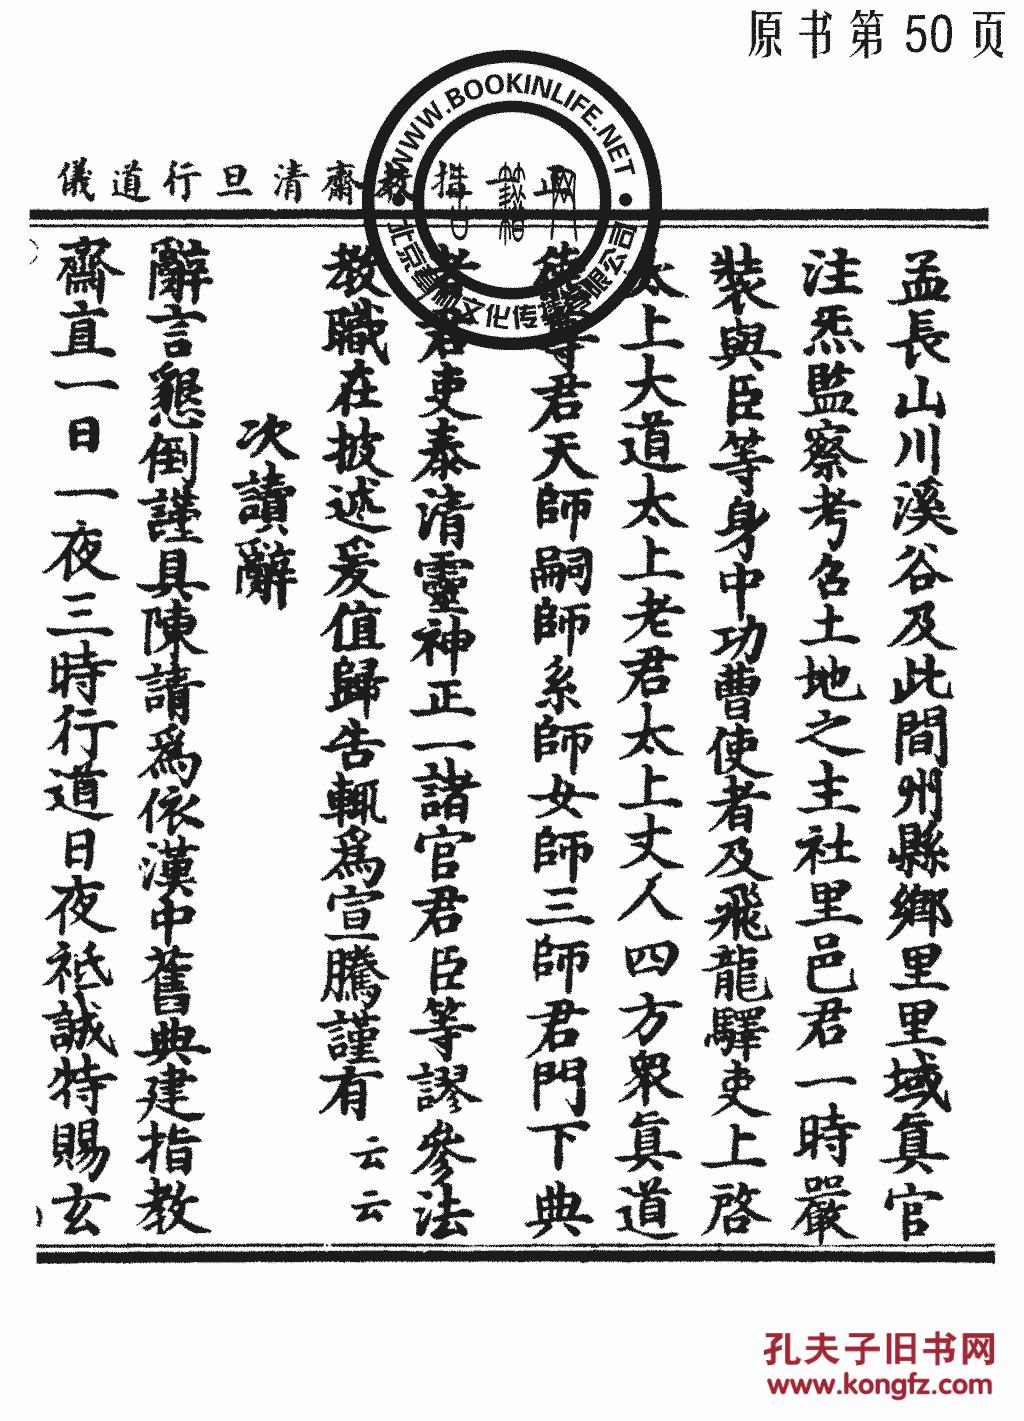 原书第50页
WWW.BOOKINLIFE.NET
北京 文化传播有限公司
正一指教齋清旦行道儀
孟長山川溪谷及此間州縣鄉里里域真官
注炁監察考召土地之主社里邑君一時嚴
裝與臣等身中功曹使者及飛龍驛吏上啓
太上大道太上老君太上丈人四方衆真道
德 君天師嗣師系師女師三師君門下典
者君吏泰清靈神正一諸官君臣等謬參法
教職在披述爰值歸告輒爲宣騰謹有云云
次讀辭
辭言懇倒謹具陳請爲依漢中舊典建指教
齋直一日一夜三時行道日夜祗誠特賜玄
孔夫子旧书网
www.kongfz.com